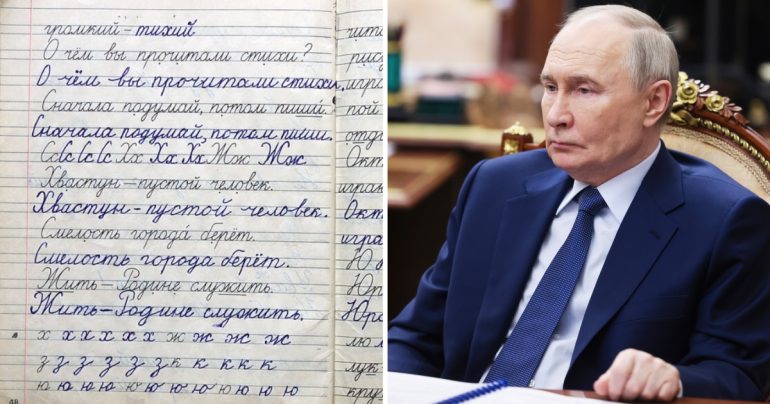 громкий-тихий
О чём вы прочитали стихи?
О чём вы прочитали стихи.
Сначала подумай, потом пиши.
Сначала подумай, потом пиши.
Сс Сс Сс Хх Хх Хх Жж Жж
Хвастун-пустой человек.
Хвастун-пустой человек.
Смелость города берёт.
Смелость города берёт.
Жить-Родине служить.
Жить-Родине служить.
х х х х х х ж ж ж ж
з з з з з з к к к к
ю ю ю ю ю ю ю ю ю ю ю
48
пой
Окт
Окт
игра
Ю
лук-